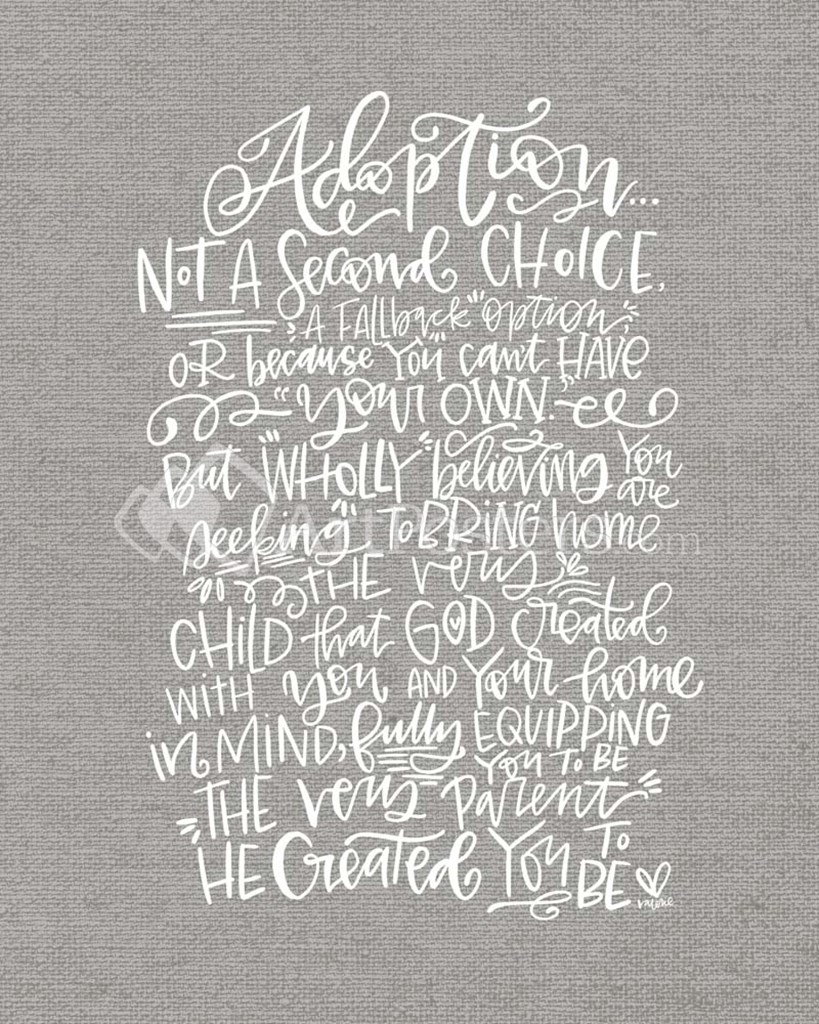 Adoption...
NOT A Second CHOICE,
A FALLback "option,"
OR because "YOU" can't HAVE
"your OWN."
But "WHOLLY" believing You are
seeking TO BRING home
THE very
CHILD that GOD created
WITH you AND Your home
in MIND, fully EQUIPPING
YOU TO BE
THE very parent
HE Created You TO BE
valerie